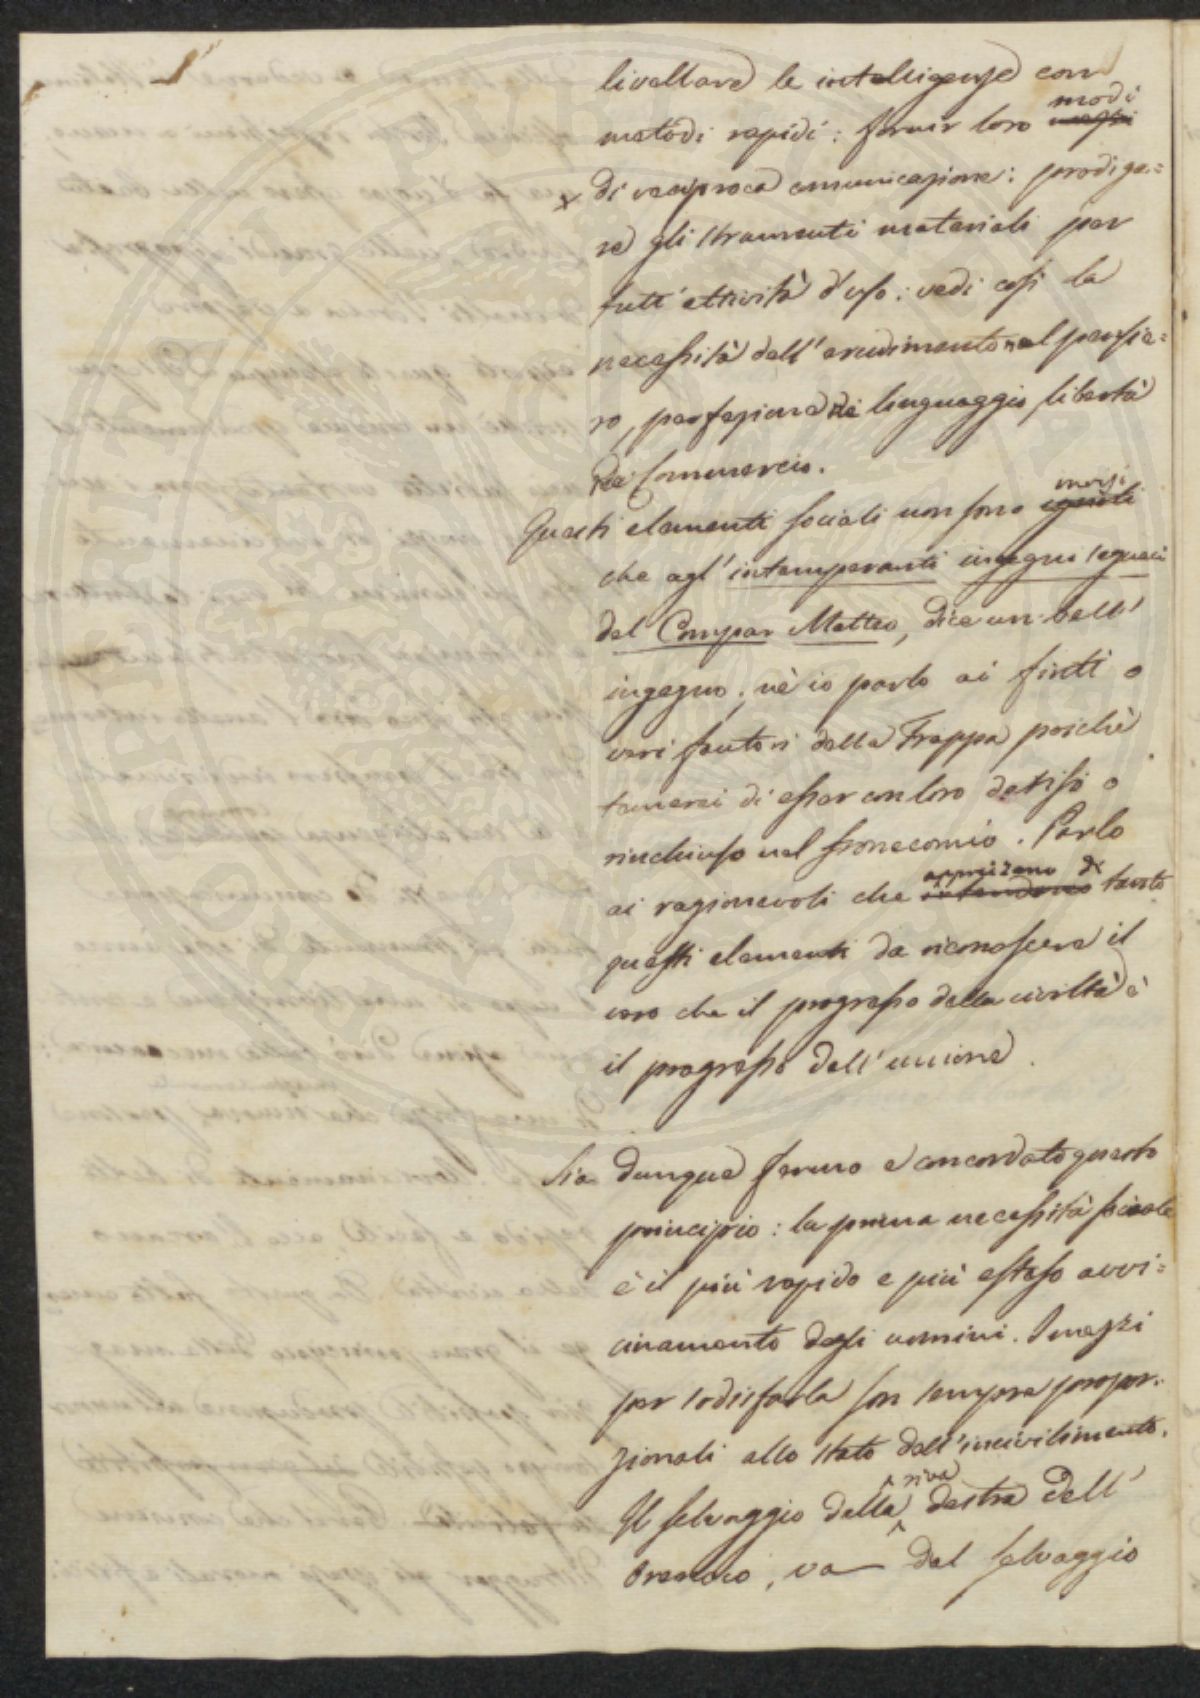 livellare le intelligenze con
metodi rapidi: fornir loro modi mezzi
x di reciproca comunicazione: prodiga:=
re gli stromenti materiali per
tutt'attività d'uso: vedi così la
necessità dell'erudimento nel pensie=
ro, perfezione di linguaggio, libertà
di Commercio.
Questi elementi sociali non sono invisi
che agl'intemperanti ingegni seguaci
del Compar Matteo, dice un bell'
ingegno; nè io parlo ai finti o
veri fautori della Trappa poichè
temerei di esser con loro deriso o
rinchiuso nel frenecomio. Parlo
ai ragionevoli che apprezzano di intendono tanto
questi elementi da riconoscere il
vero che il progresso della civiltà è
il progresso dell'unione.
Sia dunque fermo e concordato questo
principio: la prima necessità sociale
è il più rapido e più esteso avvi=
cinamento degli uomini. I mezzi
per sodisfarla son sempre propor:
zionali allo stato dell'incivilimento.
Il selvaggio della riva destra dell'
Orenoco, va dal selvaggio